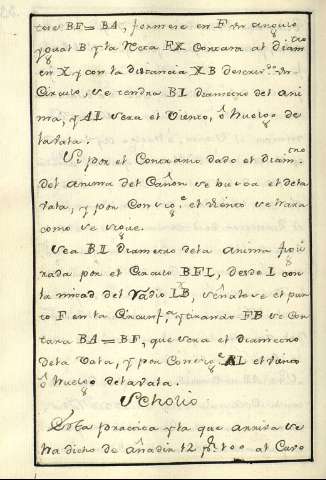 tese BF=BA, formese en F un angulo
ygual B y la recta FX Cortara al diam.tro
en X y con la distancia XB descriv.do un
Circulo, se tendra BI diametro del ani
ma, y AI sera el viento, ô huelgo de
la vala.
Si por el Contrario dado el diam.tro
del anima del Cañon se busca el de la
vala, y por Consig.e el viento se hara
como se sigue.
Sea BI diametro de la anima figu
rada por el Circulo BFI, desde I con
la mitad del Radio IB, señalese el pun
to F en la Circunf.a y tirando FB se Cor
tara BA=BF, que sera el diametro
de la Vala, y por Consig.e AI el viento
ô huelgo de la vala.
Scholio
Esta practica y la que arriva se
ha dicho de añadir 12 p.r 100 al Cavo